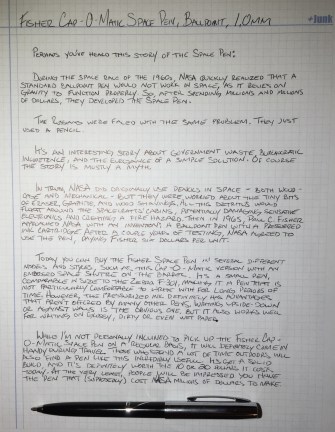 FISHER CAP-O-MATIC SPACE PEN, BALLPOINT, 1.0MM
PERHAPS YOU'VE HEARD THIS STORY OF THE SPACE PEN:
DURING THE SPACE RACE OF THE 1960s, NASA QUICKLY REALIZED THAT A
STANDARD BALLPOINT PEN WOULD NOT WORK IN SPACE, AS IT RELIES ON
GRAVITY TO FUNCTION PROPERLY. SO, AFTER SPENDING MILLIONS AND MILLIONS
OF DOLLARS, THEY DEVELOPED THE SPACE PEN.
THE RUSSIANS WERE FACED WITH THE SAME PROBLEM. THEY JUST
USED A PENCIL.
IT'S AN INTERESTING STORY ABOUT GOVERNMENT WASTE, BUREAUCRATIC
INCOMPETENCE, AND THE ELEGANCE OF A SIMPLE SOLUTION. OF COURSE
THE STORY IS MOSTLY A MYTH.
IN TRUTH, NASA DID ORIGINALLY USE PENCILS IN SPACE - BOTH WOOD-
CASE AND MECHANICAL - BUT THEY WERE WORRIED ABOUT THE TINY BITS
OF ERASER, GRAPHITE AND WOOD SHAVINGS. ALL THIS DETRITUS WOULD
FLOAT AROUND THE SPACECRAFT'S CABINS, POTENTIALLY DAMAGING SENSITIVE
ELECTRONICS AND CREATING A FIRE HAZARD. THEN IN 1965, PAUL C. FISHER
APPROACHED NASA WITH AN INVENTION: A BALLPOINT PEN WITH A PRESSURIZED
INK CARTRIDGE. AFTER A COUPLE YEARS OF TESTING, NASA AGREED TO
USE THE PEN, PAYING FISHER SIX DOLLARS PER UNIT.
TODAY YOU CAN BUY THE FISHER SPACE PEN IN SEVERAL DIFFERENT
MODELS AND STYLES, SUCH AS THIS CAP-O-MATIC VERSION WITH AN
EMBOSSED SPACE SHUTTLE ON THE BARREL. IT'S A SMALL PEN,
COMPARABLE IN SIZE TO THE ZEBRA F-301, MAKING IT A PEN THAT IS
NOT PARTICULARLY COMFORTABLE TO WRITE WITH FOR LONG PERIODS OF
TIME. HOWEVER, THE PRESSURIZED INK DEFINITELY HAS ADVANTAGES
THAT AREN'T OFFERED BY MANY OTHER PENS. WRITING UPSIDE-DOWN
OR AGAINST WALLS IS THE OBVIOUS ONE, BUT IT ALSO WORKS WELL
FOR WRITING ON GREASY, DIRTY OR EVEN WET PAPER.
WHILE I'M NOT PERSONALLY INCLINED TO PICK UP THE FISHER CAP-
O-MATIC SPACE PEN ON A REGULAR BASIS, IT WILL DEFINITELY COME IN
HANDY DURING TRAVEL. THOSE WHO SPEND A LOT OF TIME OUTDOORS WILL
ALSO FIND A PEN LIKE THIS INCREDIBLY USEFUL. IT'S GOT A SOLID
BUILD, AND IT'S DEFINITELY WORTH THE 10 OR 20 BUCKS IT COSTS
TODAY. AT THE VERY LEAST, PEOPLE WILL BE IMPRESSED YOU HAVE
THE PEN THAT (SUPPOSEDLY) COST NASA MILLIONS OF DOLLARS TO MAKE.